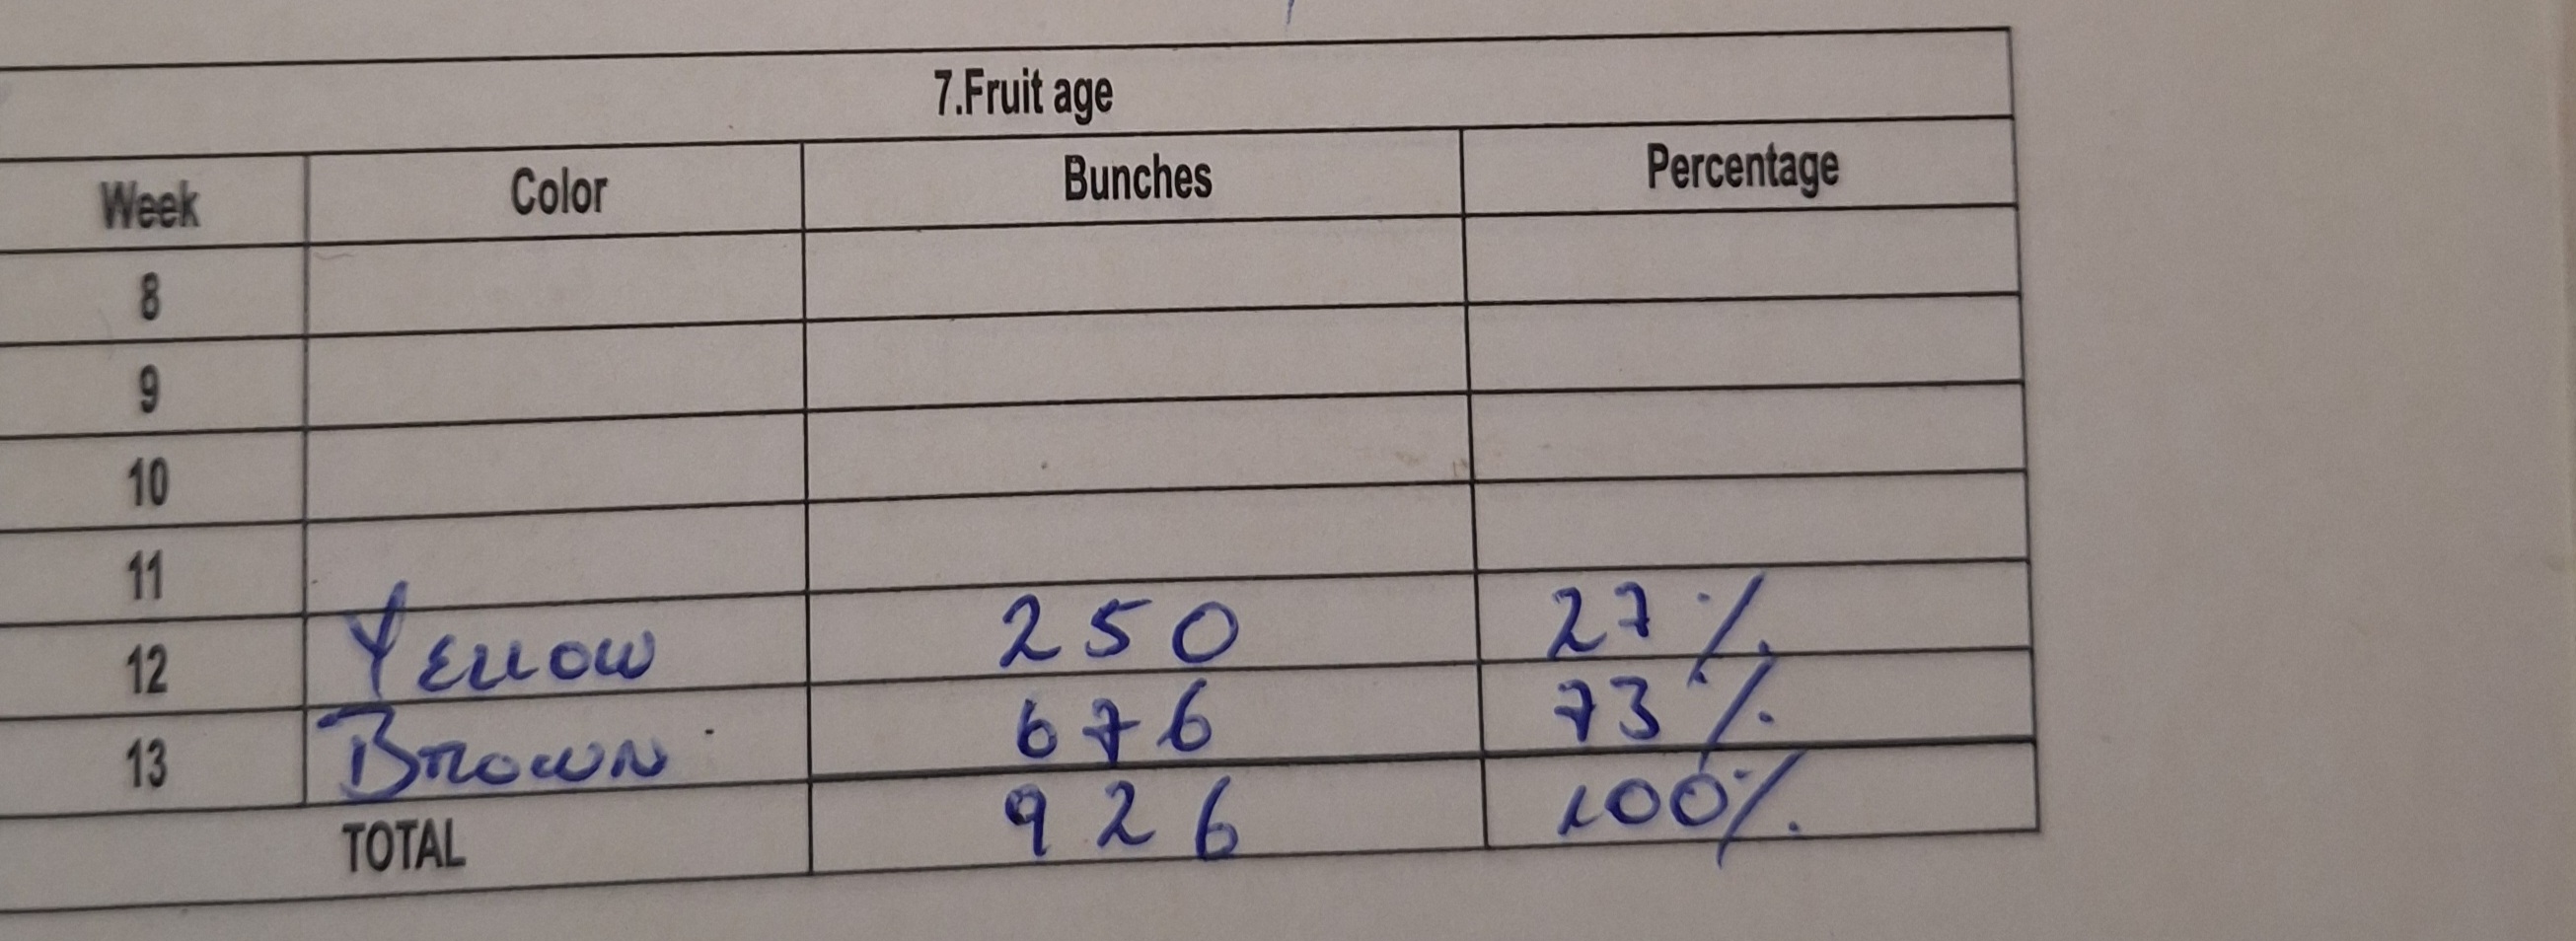 7.Fruit age
Week Color Bunches Percentage
8
9
10
11
12 Yellow 250 27%
13 Brown 676 73%
TOTAL 926 100%